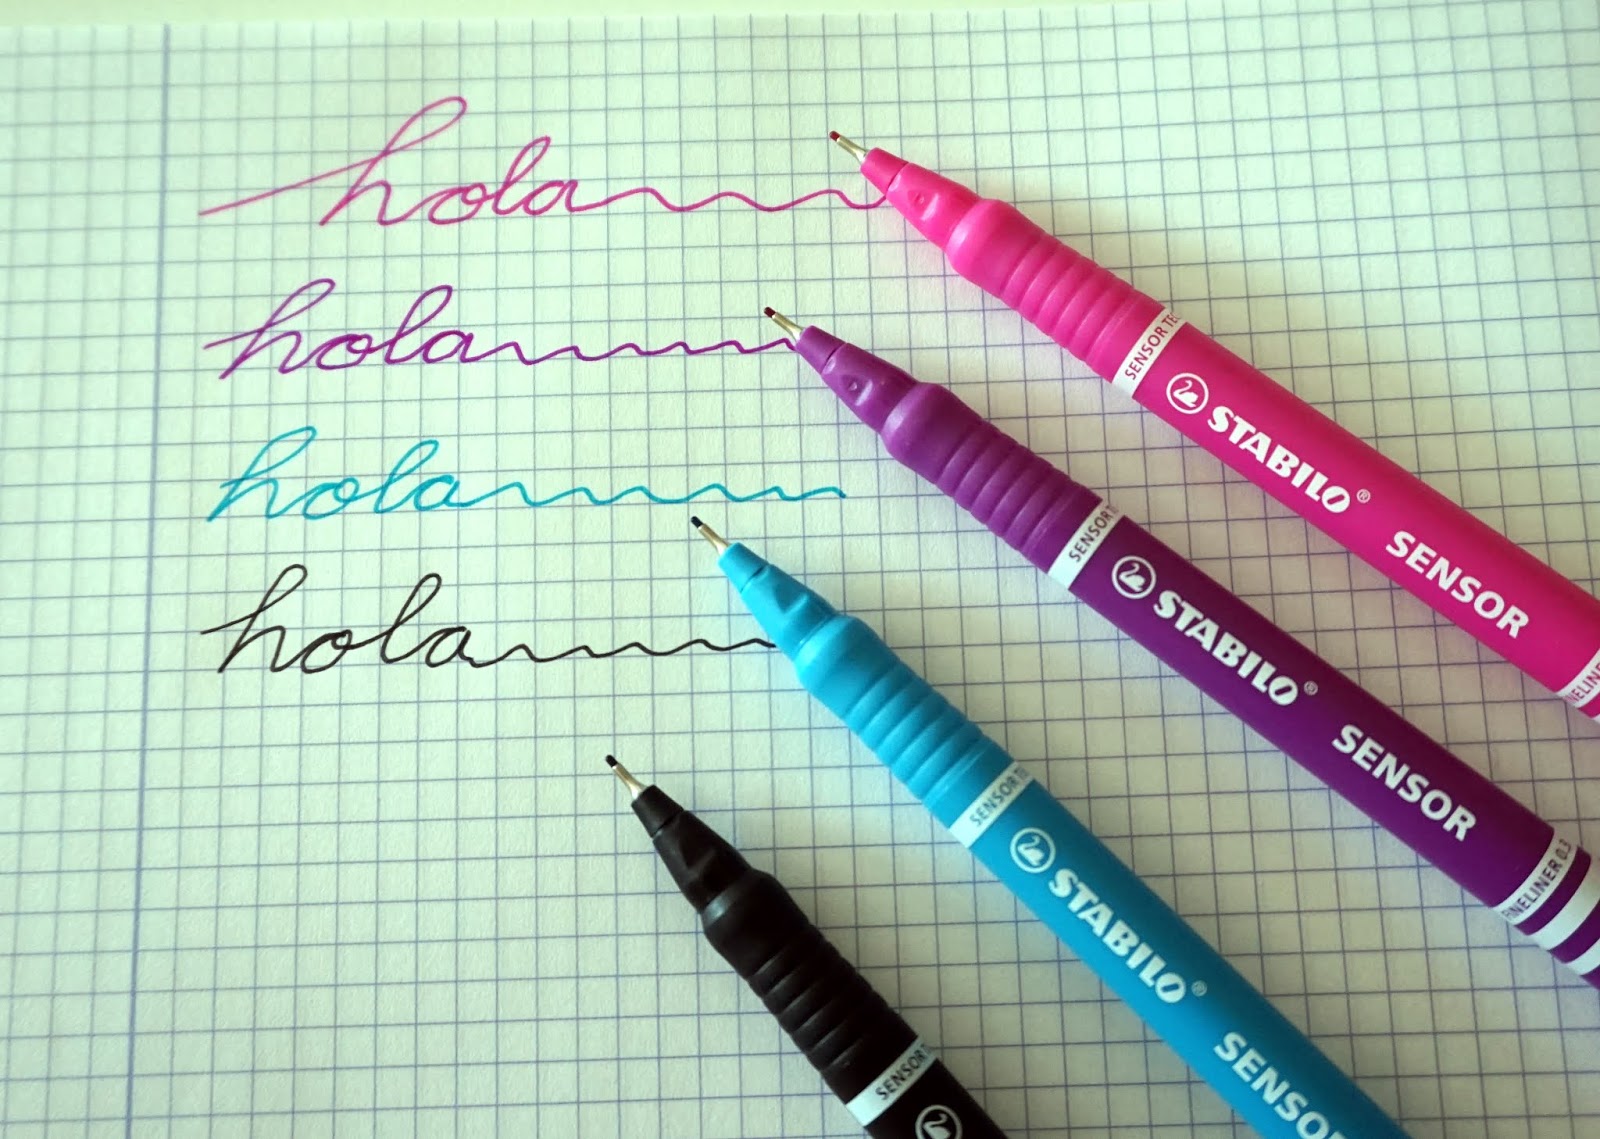 hola
hola
hola
hola
SENSOR
STABILO® SENSOR
SENSOR
STABILO® SENSOR
FINELINER 0.3
SENSOR
STABILO®
SENSOR